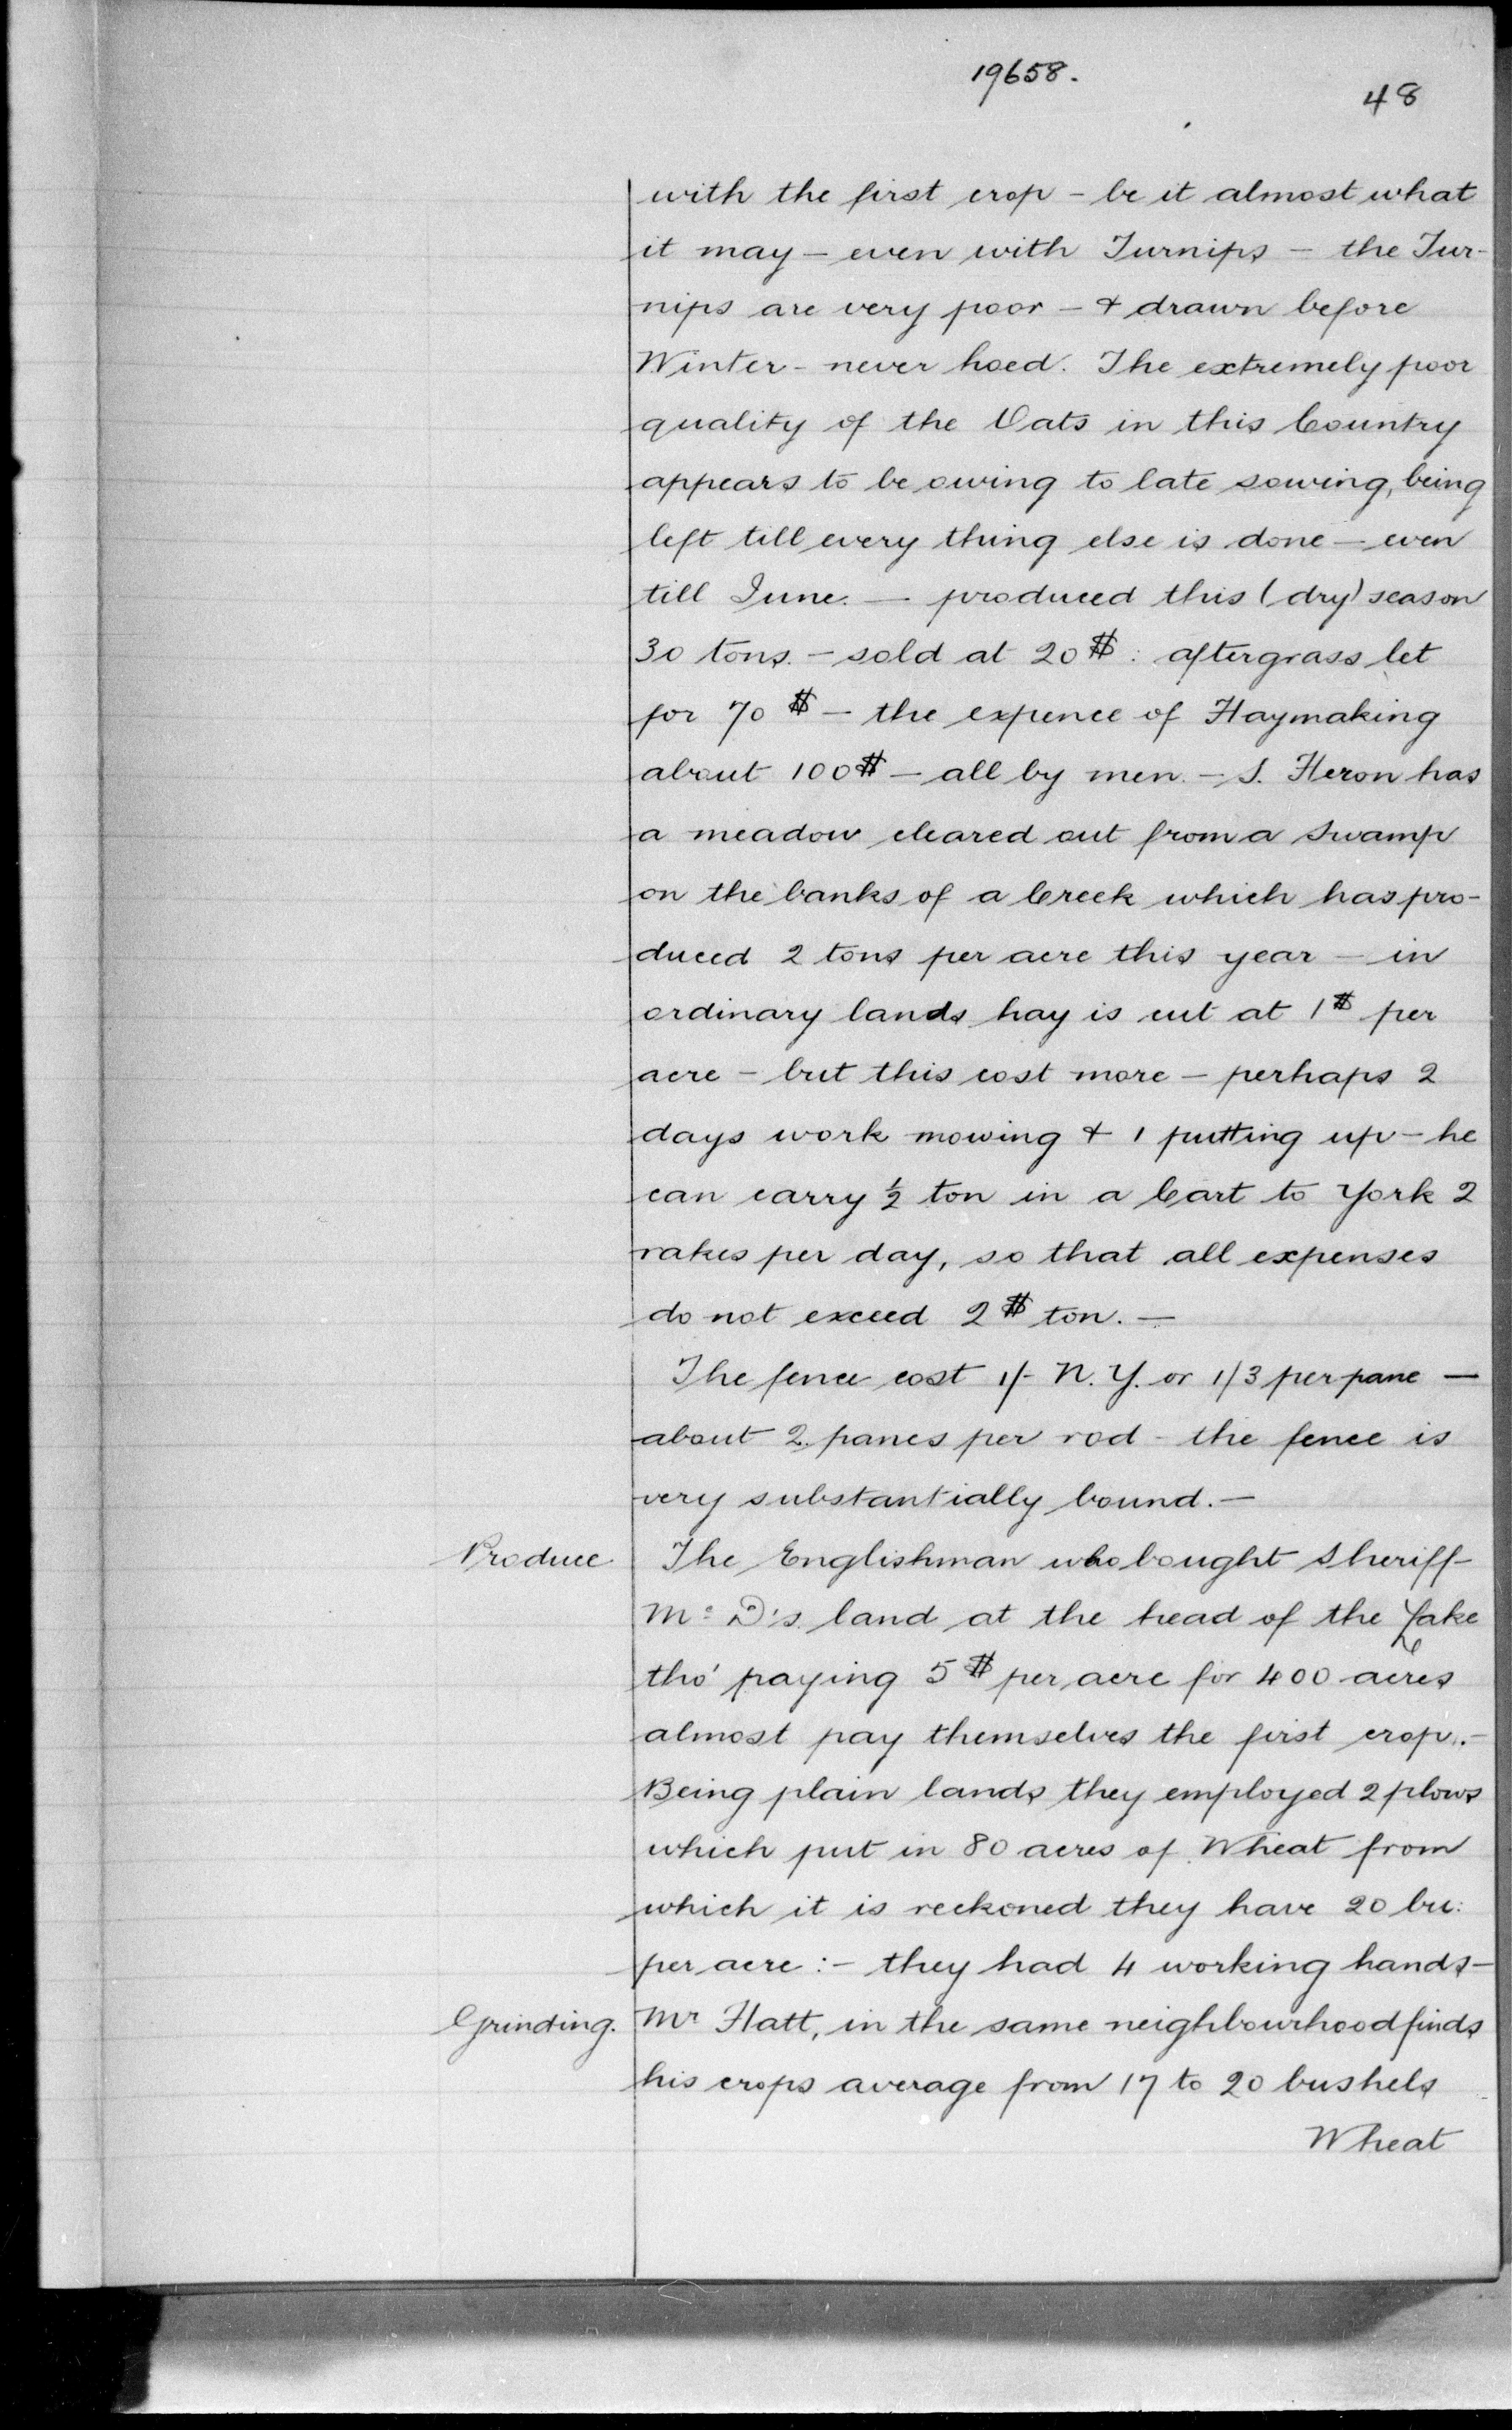 19658.
48
with the first crop - be it almost what
it may - even with Turnips - the Tur-
nips are very poor - & drawn before
Winter - never hoed. The extremely poor
quality of the Oats in this Country
appears to be owing to late sowing, being
left till every thing else is done - even
till June. — produced this (dry) season
30 tons. - sold at 20 $: aftergrass let
for 70 $ - the expence of Haymaking
about 100 $ - all by men. - S. Heron has
a meadow cleared out from a Swamp
on the banks of a Creek which has pro-
duced 2 tons per acre this year - in
ordinary lands hay is cut at 1 $ per
acre - but this cost more - perhaps 2
days work mowing & 1 putting up - he
can carry ½ ton in a Cart to York 2
rakes per day, so that all expenses
do not exceed 2 $ ton. —
The fence cost 1/- N.Y. or 1/3 per pane —
about 2 panes per rod - the fence is
very substantially bound. —
Produce. The Englishman who bought Sheriff
Mc D's. land at the head of the Lake
tho' paying 5 $ per acre for 400 acres
almost pay themselves the first crop. -
Being plain lands they employed 2 plows
which put in 80 acres of Wheat from
which it is reckoned they have 20 bu:
per acre: - they had 4 working hands -
Grinding. Mr Hatt, in the same neighbourhood finds
his crops average from 17 to 20 bushels
Wheat